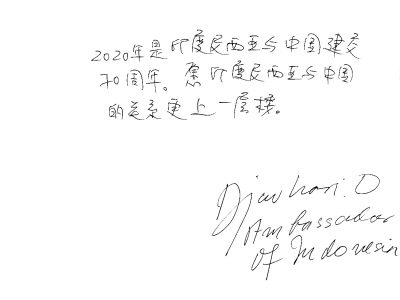 2020年是印度尼西亚与中国建交
70周年。愿印度尼西亚与中国
的关系更上一层楼。
Djauhari. O
Ambassador
of Indonesia